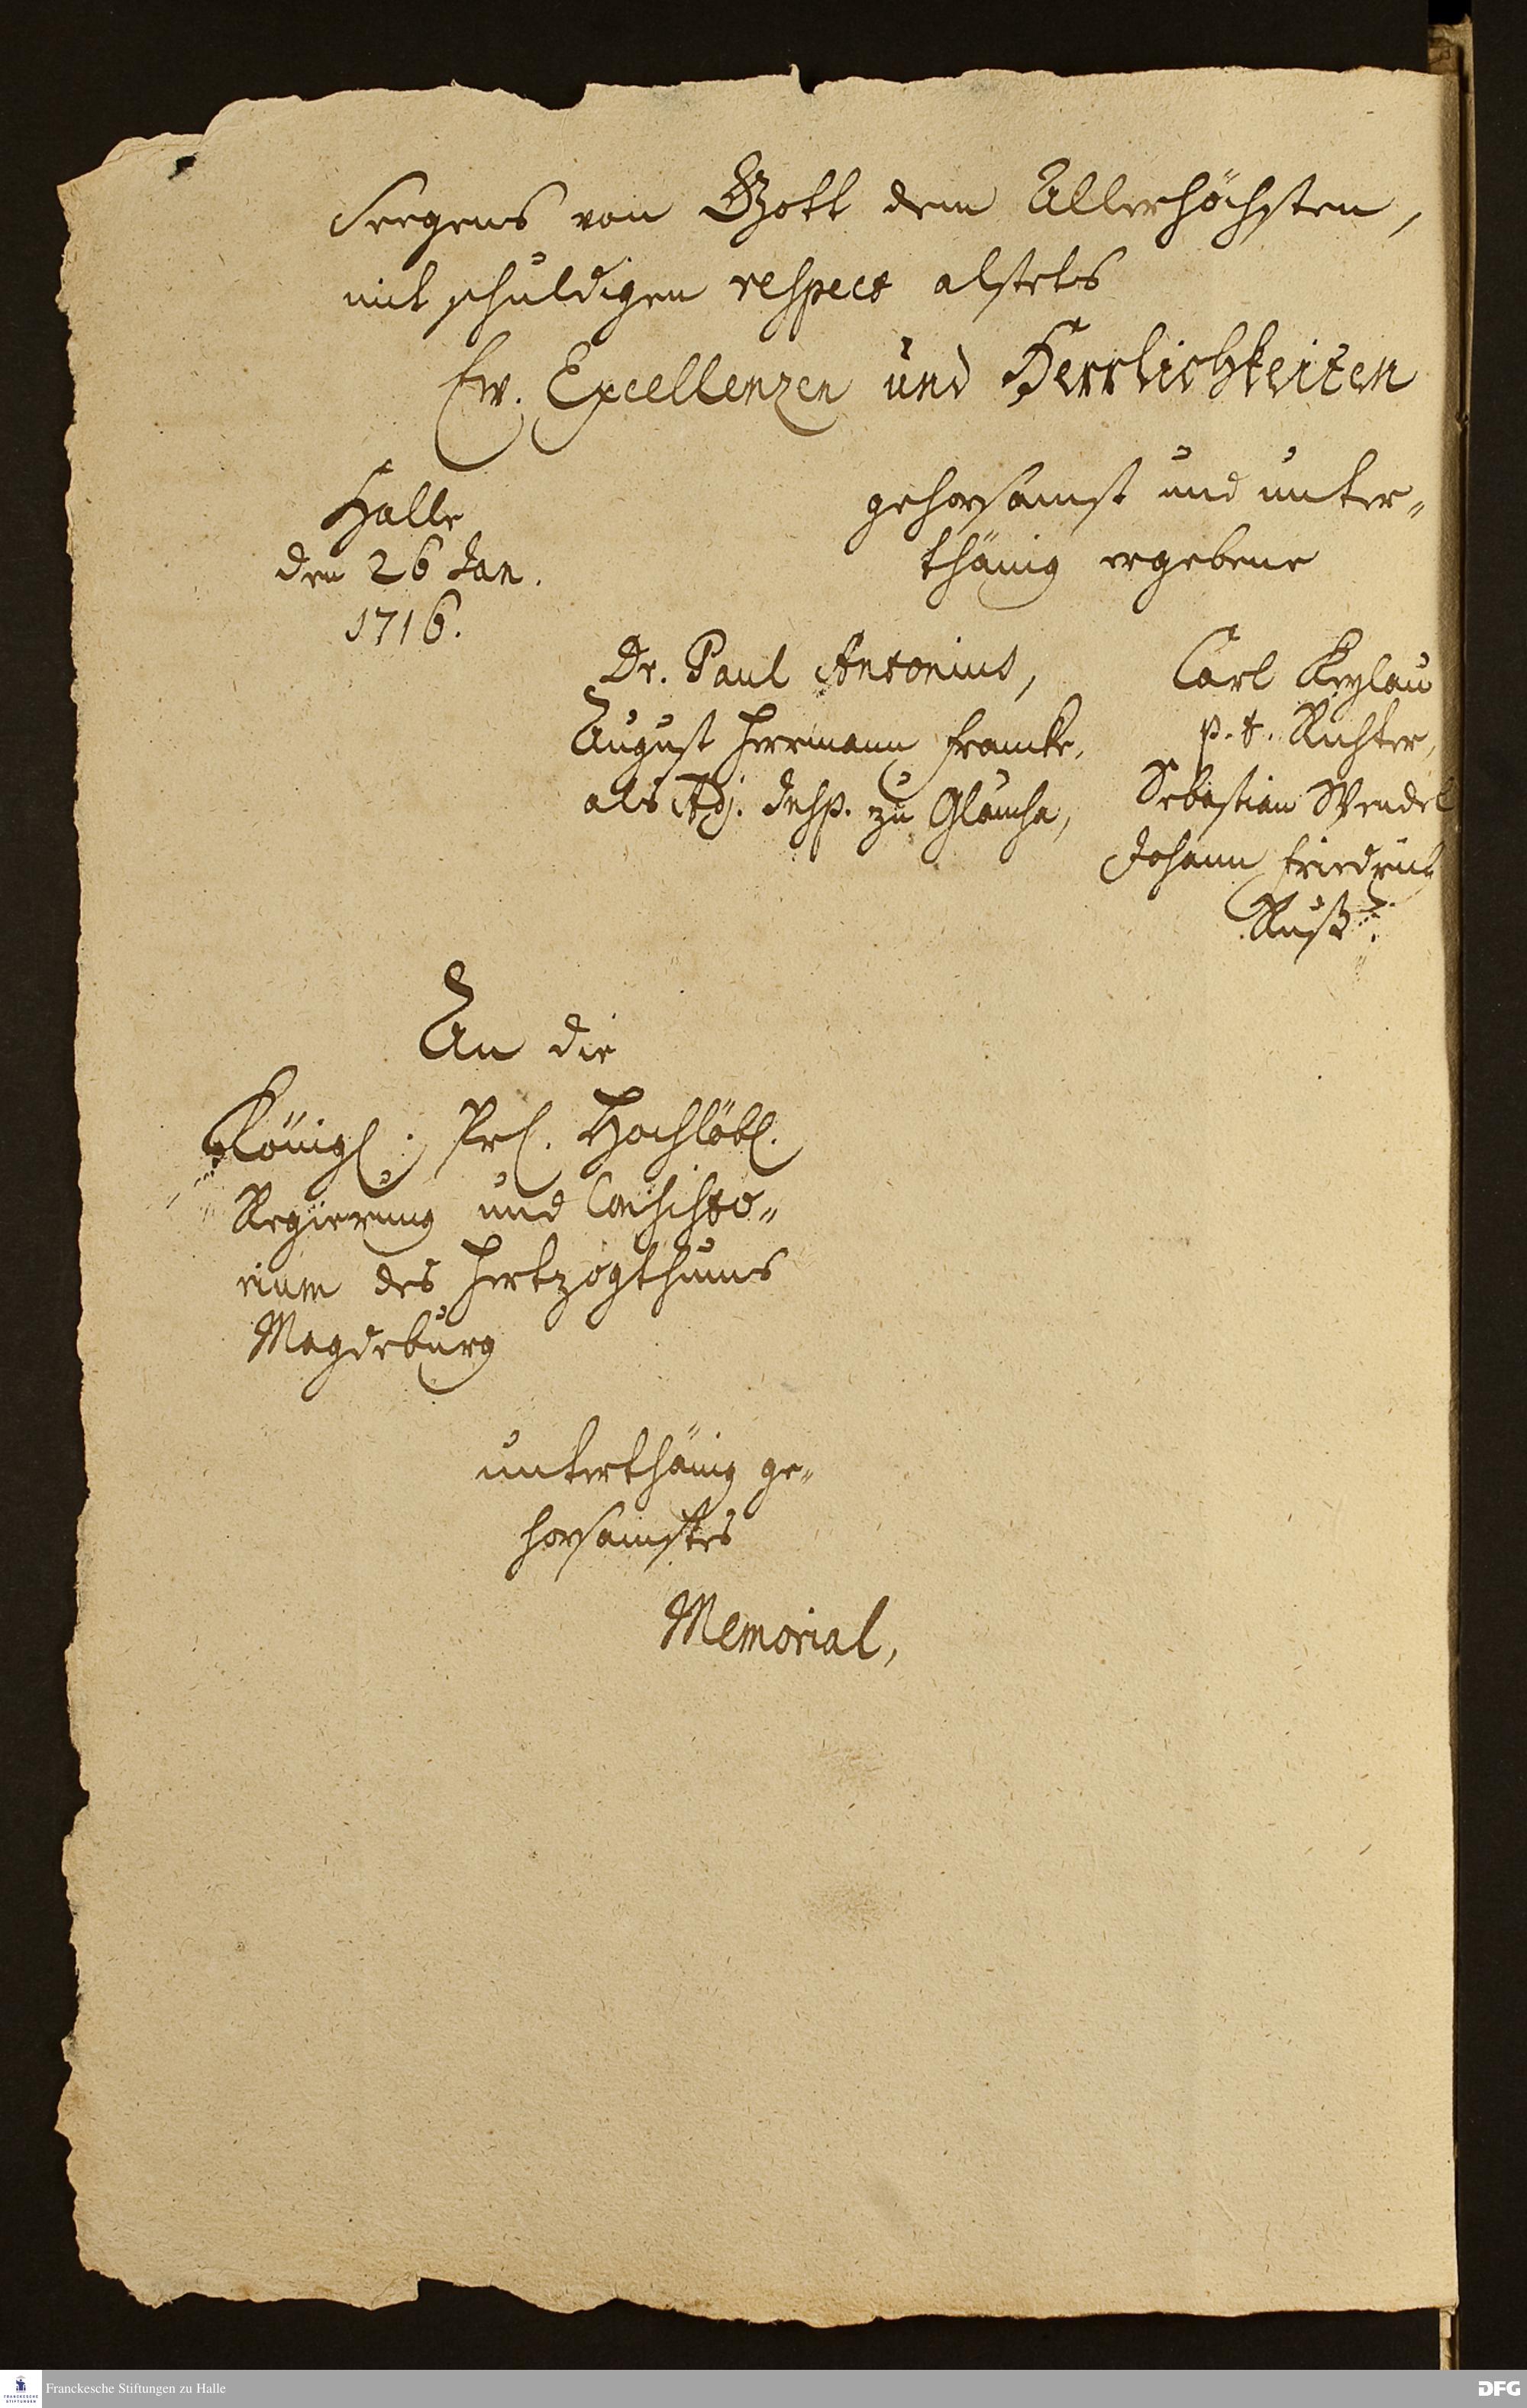 Seegens von Gott dem Allerhöchsten,
mit schuldigen respect alstets
Ew. Excellenzen und Herrlichkeiten
gehorsamst und unter„
thänig ergebene
Halle
den 26 Jan.
1716.
Dr. Paul Antonius,
August Herrmann Francke,
als Adj. Insp. zu Glaucha,
Carl Keylau
p. t. Richter,
Sebastian Wendel
Johann Friedrich
Ruß.
An die
Königl. Prl. Hochlöbl.
Regierung und Consisto„
rium des Hertzogthums
Magdeburg
unterthänig ge„
horsamstes
Memorial,
FRANCKESCHE STIFTUNGEN
Franckesche Stiftungen zu Halle
DFG